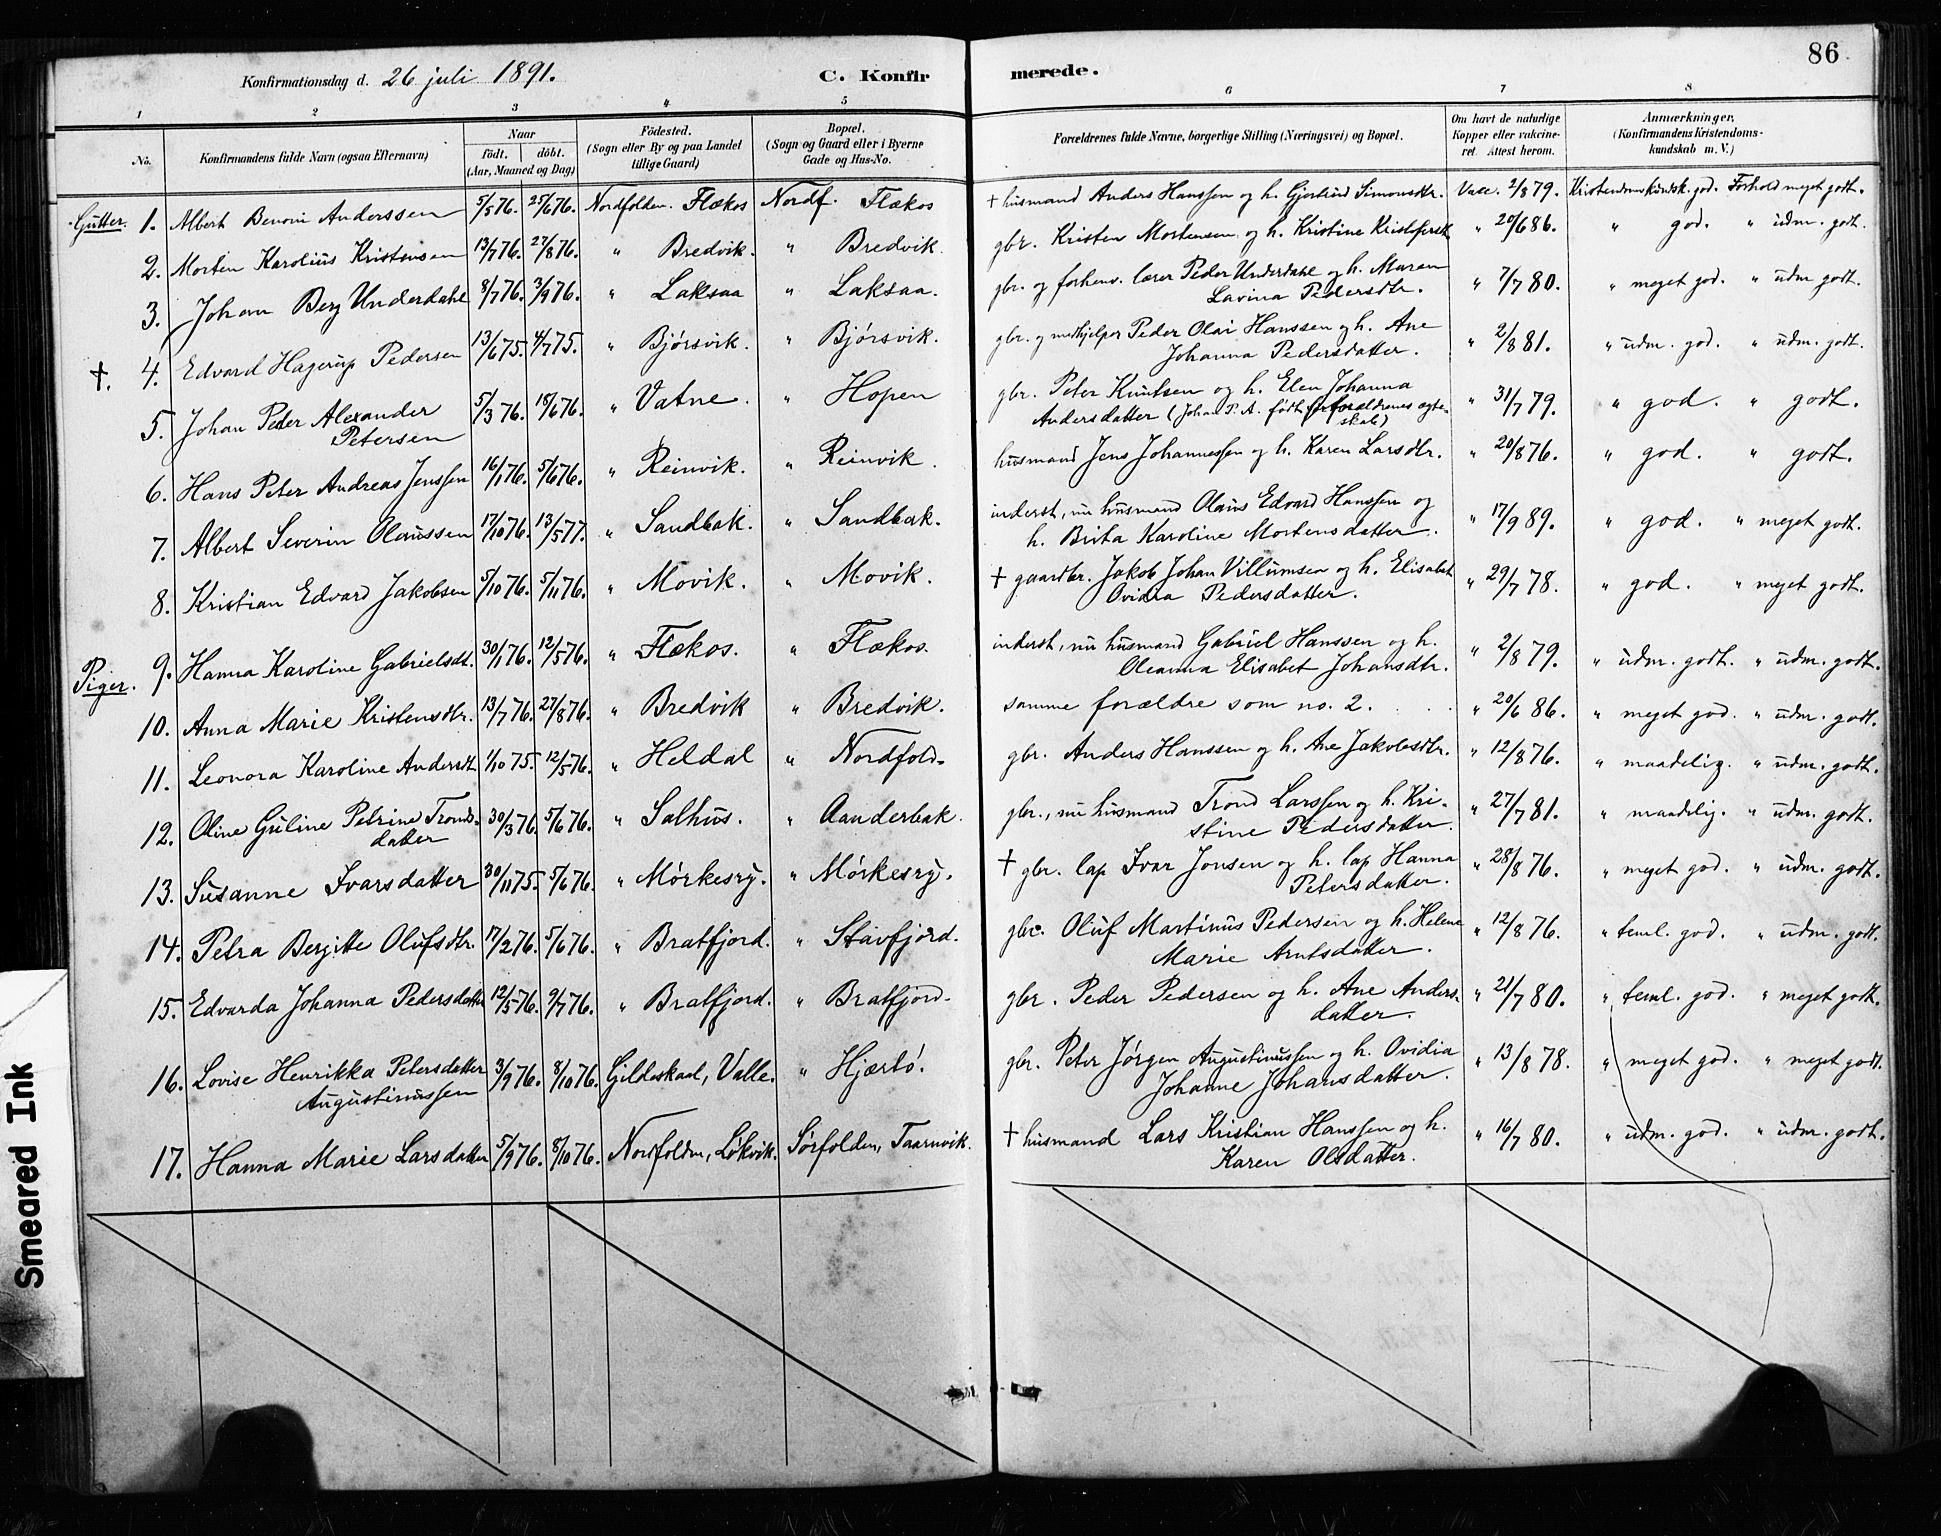 86
Konfirmationsdag d. 26 juli 1891. C. Konfir merede.
1 2 3 4 5 6 7 8
No. Konfirmandens fulde Navn (ogsaa Efternavn) Naar født. døbt. (Aar, Maaned og Dag) Fødested. (Sogn eller By og paa Landet tillige Gaard) Bopæl. (Sogn og Gaard eller i Byerne Gade og Hus-No. Forældrenes fulde Navne, borgerlige Stilling (Næringsvei) og Bopæl. Om havt de naturlige Kopper eller vakcineret. Attest herom. Anmærkninger. (Konfirmandens Kristendomskundskab m. V.)
Gutter. 1. Albert Benoni Anderssen 5/5 76. 25/6 76. Nordfolden. Flækos Nordf. Flækos + husmand Anders Hanssen og h. Gjertrud Simonsdtr. Vacc. 2/8 79. Kristendomskundsk. god. Forhold meget godt.
2. Morten Karolius Kristensen 13/7 76. 27/8 76. " Bredvik. " Bredvik. gbr. Kristen Mortensen og h. Kristine Kristofersd. " 20/6 86. " god. " udm. godt.
3. Johan Berg Underdahl 8/7 76. 3/9 76. " Laksaa " Laksaa. gbr. og forhenv. lærer Peder Underdahl og h. Maren " 7/7 80. " meget god. " udm godt.
Lavina Pedersdtr.
†. 4. Edvard Hagerup Pedersen 13/6 75. 4/7 75. " Bjørsvik. " Bjørsvik. gbr. og medhjelper Peder Olai Hanssen og h. Ane " 2/8 81. " udm. god. " udm. godt.
Johanna Pedersdatter.
5. Johan Peder Alexander 5/3 76. 18/6 76. " Vatne. " Hopen gbr. Peter Knutsen og h. Elen Johanna " 31/7 79. " god. " godt.
Petersen Andersdatter (Johan P. A. født før forældrenes ægte-
skab)
6. Hans Peter Andreas Jenssen 16/1 76. 5/6 76. " Reinvik. " Reinvik. husmand Jens Johannessen og h. Karen Larsdtr. " 20/8 76. " god. " godt.
7. Albert Severin Olaussen 17/10 76. 13/5 77. " Sandbak. " Sandbak. inderst, nu husmand Olaus Edvard Hanssen og " 17/9 89. " god. " meget godt.
h. Brita Karoline Mortensdatter.
8. Kristian Edvard Jakobsen 5/10 76. 5/11 76. " Movik. " Movik. + gaardbr. Jakob Johan Villumsen og h. Elisabet " 29/7 78. " god. " meget godt.
Ovidia Pedersdatter.
Piger. 9. Hanna Karoline Gabrielsdt. 30/1 76. 12/5 76. " Flækos. " Flækos. inderst, nu husmand Gabriel Hanssen og h. " 2/8 79. " udm. godt. " udm. godt.
Oleanna Elisabet Johansdtr.
10. Anna Marie Kristensdtr. 13/7 76. 27/8 76. " Bredvik " Bredvik. samme forældre som no. 2. " 20/6 86. " meget god. " udm. godt.
11. Leonora Karoline Andersdt. 1/10 75. 12/5 76. " Heldal " Nordfold. gbr. Anders Hanssen og h. Ane Jakobsdtr. " 12/8 76. " maadelig. " udm. godt.
12. Oline Guline Petrine Tronds- 30/3 76. 5/6 76. " Salhus. " Aanderbak. gbr., nu husmand Trond Larssen og h. Kri- " 27/7 81. " maadelig. " udm. godt.
datter stine Pedersdatter.
13. Susanne Ivarsdatter 30/11 75. 5/6 76. " Mørkesry. " Mørkesry. + gbr. lap Ivar Jonsen og h. lap Hanna " 28/8 76. " meget god. " udm. godt.
Petersdatter.
14. Petra Bergitte Olufsdtr. 17/2 76. 5/6 76. " Bratfjord. " Stavfjord. gbr. Oluf Martinus Pedersen og h. Helene " 12/8 76. " teml. god. " udm. godt.
Marie Arntsdatter.
15. Edvarda Johanna Pedersdatter 12/5 76. 9/7 76. " Bratfjord. " Bratfjord. gbr. Peder Pedersen og h. Ane Anders- " 21/7 80. " teml. god. " meget godt.
datter.
16. Lovise Henrikka Petersdatter 3/9 76. 8/10 76. Gildeskaal, Valle. " Hjærtø. gbr. Peter Jørgen Augustinussen og h. Ovidia " 13/8 78. " meget god. " meget godt.
Augustinussen Johanne Johansdatter.
17. Hanna Marie Larsdatter 5/9 76. 8/10 76. Nordfolden, Løkvik. Sørfolden, Taarnvik. + husmand Lars Kristian Hanssen og h. " 16/7 80. " udm. god. " udm. godt.
Karen Olsdatter.
Smeared Ink